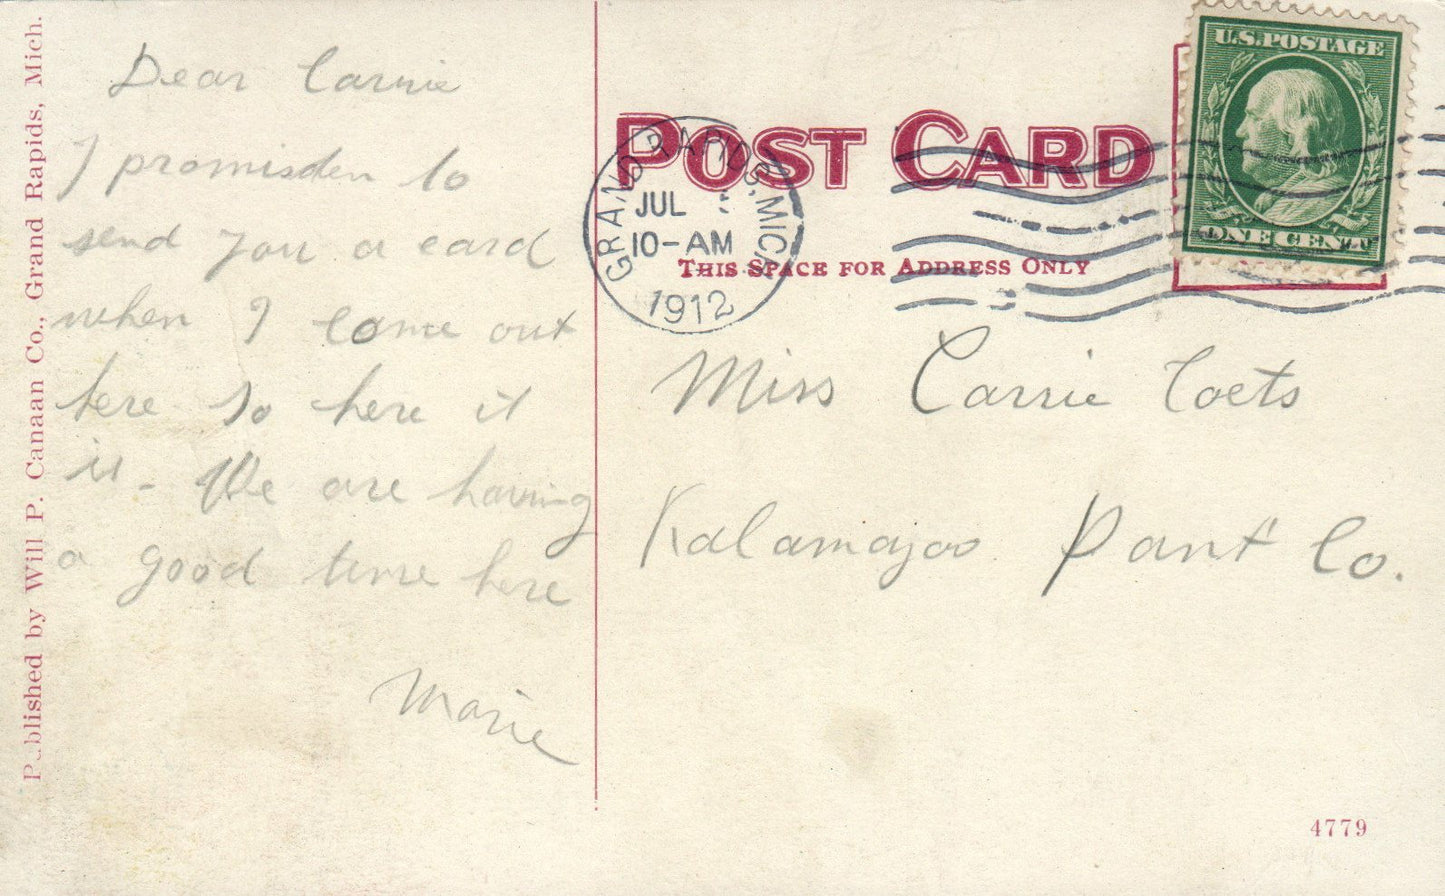 Published by Will P. Canaan Co., Grand Rapids, Mich.
Dear Carrie
I promisden to
send you a card
when I come out
here so here it
is - We are having
a good time here
Marie
POST CARD
THIS SPACE FOR ADDRESS ONLY
GRAND RAPIDS, MICH
JUL
10-AM
1912
U.S. POSTAGE
ONE CENT
Miss Carrie Coets
Kalamazoo Pant Co.
4779